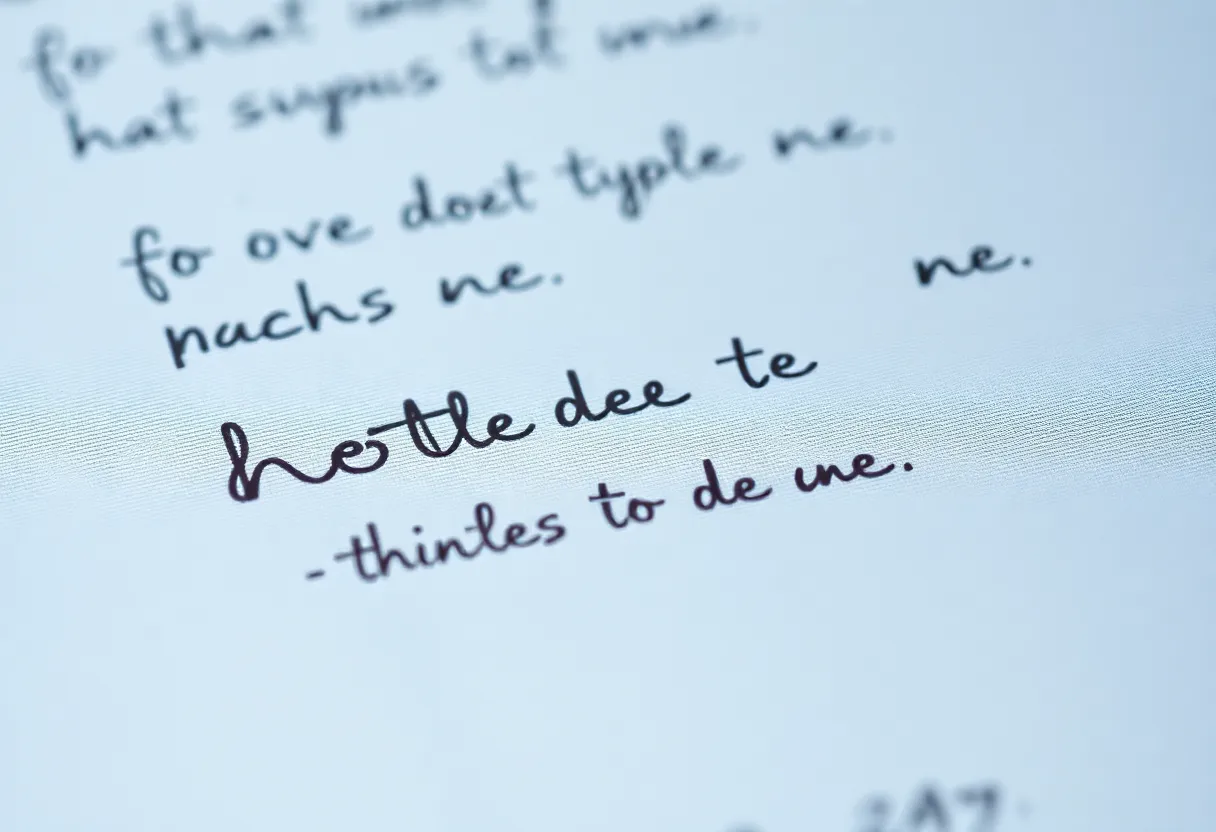 fo that
hat suypus tot vnue.
fo ove doet typle ne.
nachs ne. ne.
hotle dee te
-thintes to de une.